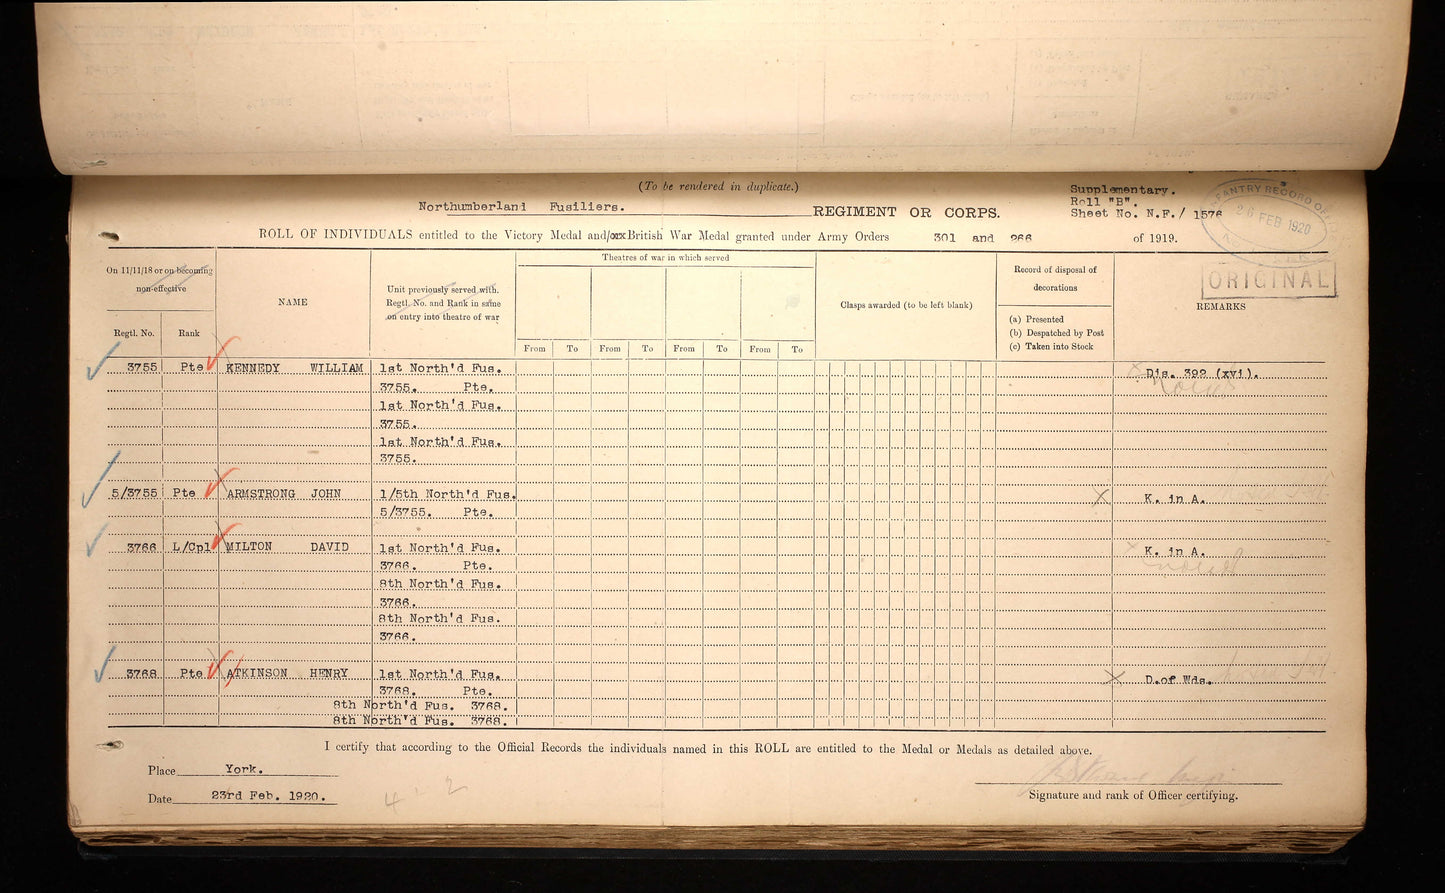 (To be rendered in duplicate.)
Supplementary.
Northumberland Fusiliers. REGIMENT OR CORPS.
Roll "B".
Sheet No. N.F./ 1576
26 FEB 1920
ROLL OF INDIVIDUALS entitled to the Victory Medal and/or British War Medal granted under Army Orders 301 and 266 of 1919.
ORIGINAL
On 11/11/18 or on becoming non-effective
Regtl. No. Rank
NAME
Unit previously served with.
Regtl. No. and Rank in same
on entry into theatre of war
Theatres of war in which served
From To From To From To From To
Clasps awarded (to be left blank)
Record of disposal of
decorations
(a) Presented
(b) Despatched by Post
(c) Taken into Stock
REMARKS
3755 Pte KENNEDY WILLIAM 1st North'd Fus. Dis. 392 (xvi).
3755. Pte.
1st North'd Fus.
3755.
1st North'd Fus.
3755.
5/3755 Pte ARMSTRONG JOHN 1/5th North'd Fus. K. in A.
5/3755. Pte.
3766 L/Cpl MILTON DAVID 1st North'd Fus. K. in A.
3766. Pte.
8th North'd Fus.
3766.
8th North'd Fus.
3766.
3768 Pte ATKINSON HENRY 1st North'd Fus. D.of Wds.
3768. Pte.
8th North'd Fus. 3768.
8th North'd Fus. 3768.
I certify that according to the Official Records the individuals named in this ROLL are entitled to the Medal or Medals as detailed above.
Place York.
Date 23rd Feb. 1920.
Signature and rank of Officer certifying.